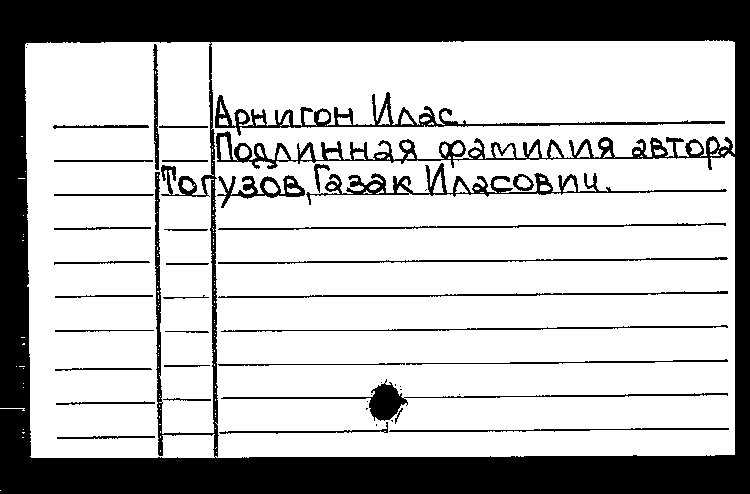 Арнигон Илас.
Подлинная фамилия автора
Тогузов, Газак Иласович.